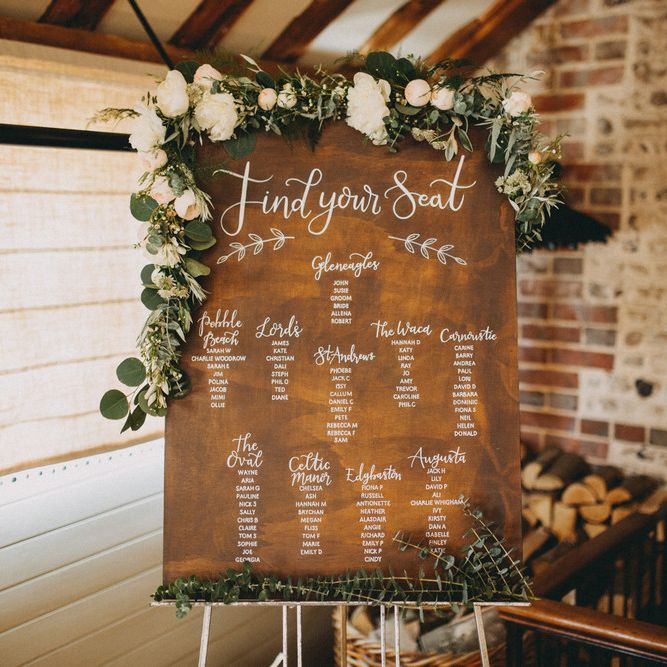 Find your Seat
Gleneagles
JOHN
SUSIE
GROOM
BRIDE
ALLENA
ROBERT
Pebble
Beach
SARAH W
CHARLIE WOODROW
SARAH E
JIM
POLINA
JACOB
MIMI
OLLIE
Lord's
JAMES
KATE
CHRISTIAN
DALI
STEPH
PHIL O
TED
DIANE
St Andrews
PHOEBE
JACK C
OSSY
CALLUM
DANIEL C
EMILY F
PETE
REBECCA M
REBECCA F
SAM
The Waca
HANNAH D
KATY
LINDA
RAY
JO
AMY
TREVOR
CAROLINE
PHIL G
Carnoustie
CARINE
BARRY
ANDREA
PAUL
LORI
DAVID B
BARBARA
DOMINIC
FIONA S
NEIL
HELEN
DONALD
The
Oval
WAYNE
ARIA
SARAH G
PAULINE
NICK S
SALLY
CHRIS B
CLAIRE
TOM S
SOPHIE
JOE
GEORGIA
Celtic
Manor
CHELSEA
ASH
HANNAH M
BRYCHAN
MEGAN
FLISS
TOM F
MARIE
EMILY D
Edgbaston
FIONA P
RUSSELL
ANTOINETTE
HEATHER
ALASDAIR
ANGIE
RICHARD
EMILY P
NICK P
CINDY
Augusta
JACK H
LILY
DAVID P
ALI
CHARLIE WHIGHAM
IVY
KIRSTY
DAN A
ISABELLE
FINLEY
KATIE